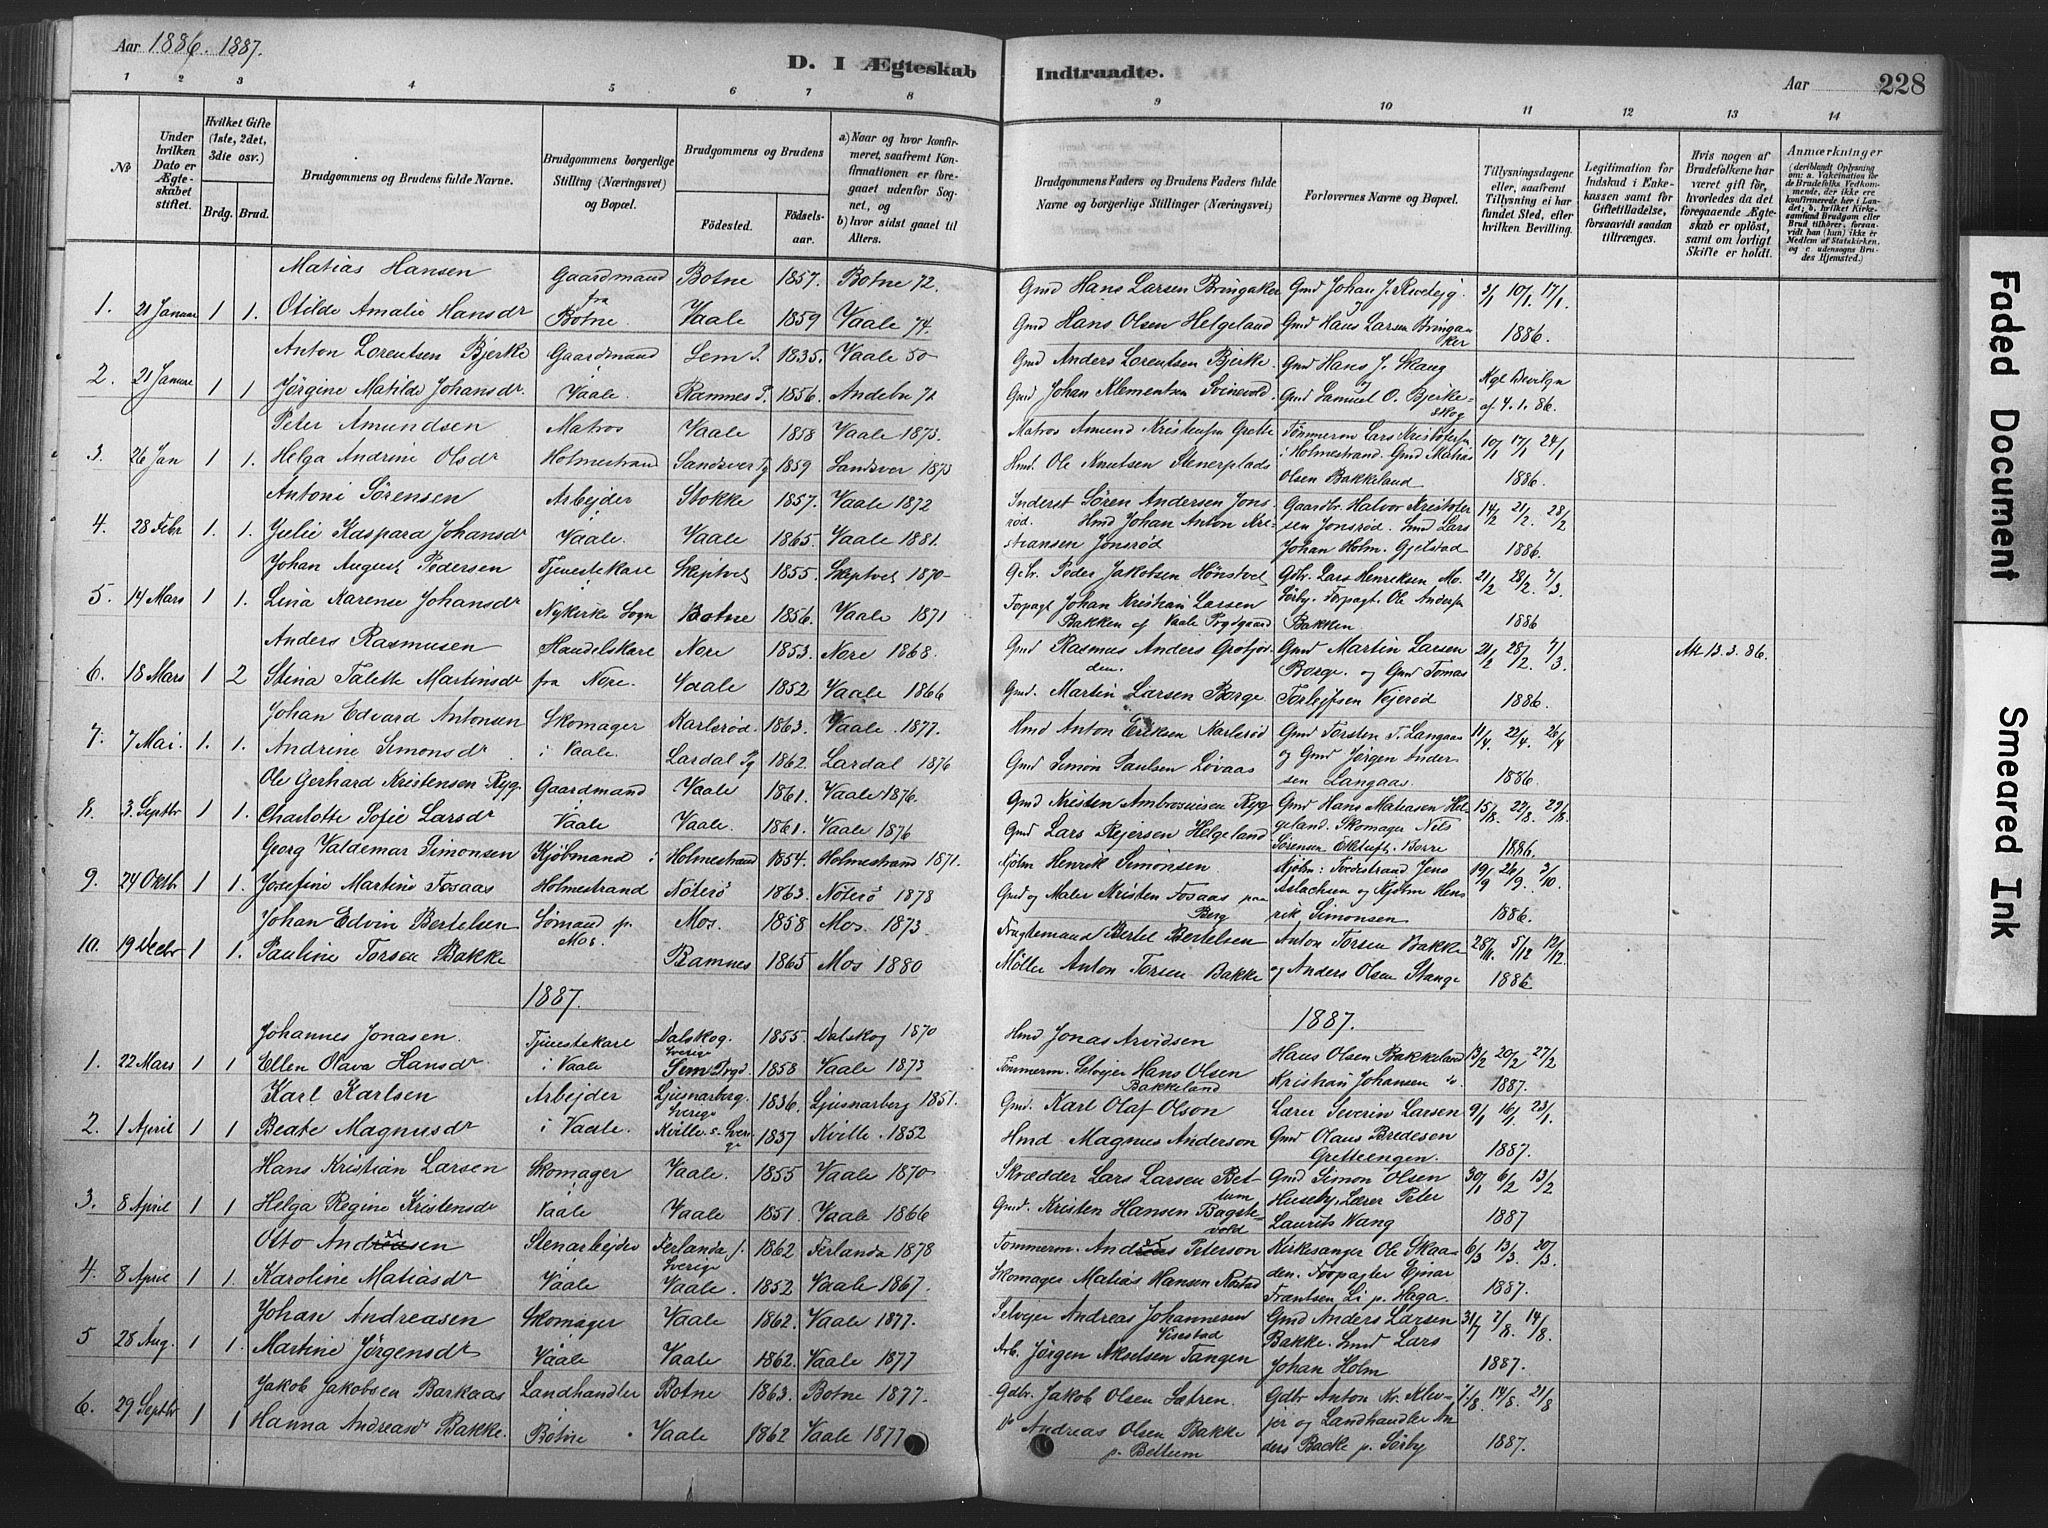 Aar 1886. 1887.
D. I Ægteskab Indtraadte.
Aar 228
1 2 3 4 5 6 7 8 9 10 11 12 13 14
No
Under hvilken Dato er Ægteskabet stiftet.
Hvilket Gifte (1ste, 2det, 3die osv.)
Brdg. Brud.
Brudgommens og Brudens fulde Navne.
Brudgommens borgerlige Stilling (Næringsvei) og Bopæl.
Brudgommens og Brudens
Fødested. Fødselsaar.
a) Naar og hvor konfirmeret, saafremt Konfirmationen er foregaaet udenfor Sognet, og
b) hvor sidst gaaet til Alters.
Brudgommens Faders og Brudens Faders fulde Navne og borgerlige Stillinger (Næringsvei)
Forlovernes Navne og Bopæl.
Tillysningsdagene eller, saafremt Tillysning ei har fundet Sted, efter hvilken Bevilling.
Legitimation for Indskud i Enkekassen samt for Giftetilladelse, forsaavidt saadan tiltrænges.
Hvis nogen af Brudefolkene har været gift før, hvorledes da det foregaaende Ægteskab er opløst, samt om lovligt Skifte er holdt.
Anmærkninger
(deriblandt Oplysning om: a. Vakcination for de Brudefolks Vedkommende, der ikke ere konfirmerede her i Landet; b. hvilket Kirkesamfund Brudgom eller Brud tilhører, forsaavidt han (hun) ikke er Medlem af Statskirken, og c. udensogns Brudes Hjemsted.)
Matias Hansen Gaardmand Botne 1857. Botne 72. Gmd Hans Larsen Bringaker Gmd Johan J. 3/1 10/1 17/1
1. 21 Januar 1 1. Otilde Amalie Hansdr fra Botne Vaale 1859 Vaale 74. Gmd Hans Olsen Helgeland Gmd Hans Larsen Bringaker 1886.
Anton Lorentsen Bjerke Gaardmand Sem P. 1835. Vaale 50 Gmd Anders Lorentsen Bjerke Gmd Hans J. Skaug
2. 21 Januar 1 1. Jørgine Matilde Johansdr. i Vaale. Ramnes P. 1856. Andebu 72 Gmd Johan Klementsen Svinevold Gmd Samuel O. Bjerkeskog Kgl Bevilgn af 4.1.86.
Peter Amundsen Matros Vaale 1858 Vaale 1873. Matros Amund Kristensen Grette Tømmerm Lars Kristofersen 10/1 17/1 24/1
3. 26 Jan 1 1. Helga Andrine Olsdr Holmestrand Sandsver Pg 1859 Sandsver 1873 Hmd. Ole Knutsen Stenerplads i Holmestrand. Gmd Matias Olsen Bakkeland 1886.
Antoni Sørensen Arbejder Stokke 1857. Vaale 1872 Inderst Søren Andersen Jonsrød. Gaardbr. Halvor Kristofersen Jonsrød. 14/2 21/2. 28/2
4. 28 Febr 1. 1. Julie Kaspara Johansdr i Vaale. Vaale 1865. Vaale 1881. Hmd Johan Anton Kristiansen Jonsrød Smd Lars Johan Holm. Gjelstad 1886.
Johan August Pedersen Tjenestekare Skiptvet 1855. Skeptvet 1870 Gbr. Peder Jakobsen Hønstvet Gdbr. Lars Henriksen 21/2 28/2. 7/3.
5. 14 Mars 1 1. Lina Karense Johansdr Nykirke Sogn Botne 1856. Vaale 1871 Fopagt Johan Kristian Larsen Bakken af Vaale Prgdgaard Sørby. Forpagt. Ole Andersen Bakken. 1886
Anders Rasmusen Handelskare Nore 1853. Nore 1868. Gmd Rasmus Anders Grotjorden. Gmd Martin Larsen 21/2 28/2. 7/3. Att 13.3.86.
6. 18 Mars 1 2 Stina Talette Martinsdr fra Nore. Vaale 1852 Vaale 1866 Gmd. Martin Larsen Borge Borge. og Gmd Tomas Torlejfsen Vejerød 1886.
Johan Edvard Antonsen Skomager Karlsrød. 1863. Vaale. 1877. Hmd Anton Eriksen Karlsrød Gmd Torsten T. Langaas 11/4. 22/4. 26/4
7. 7 Mai. 1. 1. Andrine Simonsdr i Vaale. Lardal Pg 1862. Lardal 1876 Gmd Simon Paulsen Løvaas og Gmd Jørgen Andersen Langaas 1886.
Ole Gerhard Kristensen Ryg. Gaardmand Vaale 1861. Vaale 1876. Gmd Kristen Ambrosiusen Ryg Gmd Hans Matiasen Helgeland. 15/8. 22/8. 29/8
8. 3 Septbr 1 1. Charlotte Sofie Larsdr i Vaale Vaale. 1861. Vaale 1876 Gmd Lars Rejersen Helgeland Skomager Nels Sørensen Ektuft. Borre 1886.
Georg Valdemar Simonsen Kjøbmand i Holmestrand 1854. Holmestrand 1871. Kjøbm Henrik Simonsen Kjøbm. Jens 19/9 26/9. 3/10.
9. 24 Oktb. 1 1. Josefine Martine Fosaas Holmestrand Nøterø 1863. Nøterø 1878 Gmd og Maler Kristen Fosaas paa Berg Aslachsen og Kjøbm Henrik Simonsen 1886.
Johan Edvin Bertelsen Sømand p. Mos. Mos. 1858 Mos. 1873. Fragtemand Bertel Bertelsen Anton Torsen Bakke 28/11. 5/12 12/12.
10. 19 Decbr 1 1. Pauline Torsen Bakke Ramnes 1865 Mos 1880 Møller Anton Torsen Bakke og Anders Olsen Stange 1886
1887. 1887.
Johannes Jonasen. Tjenestekare Dalskog. Sverige 1855. Dalskog 1870 Hmd Jonas Arvidsen Hans Olsen Bakkeland 13/2 20/2. 27/2
1. 22 Mars 1 1 Ellen Olava Hansdr. i Vaale Sem Prgd. 1858 Vaale 1873 Tømmerm. Selvejer Hans Olsen Bakkeland Kristian Johansen do. 1887.
Karl Karlsen Arbejder Ljusnarberg. Sverige 1836. Ljusnarberg 1851. Gmd. Karl Olaf Olson Lærer Severin Larsen 9/1 16/1 23/1.
2. 1 April 1 1 Beate Magnusdr i Vaale. Kville s. Sverige 1837 Kville. 1852 Hmd Magnus Anderson Gmd Olaus Bredesen Gretteengen. 1887.
Hans Kristian Larsen Skomager Vaale. 1855 Vaale 1870 Skrædder Lars Larsen Bettum Gmd Simon Olsen 30/1 6/2 13/2
3. 8 April 1 1 Helga Regine Kristensdr i Vaale Vaale 1851. Vaale 1866 Gmd. Kristen Hansen Bagstevold Huseby. Lærer Peter Laurits Wang 1887
Otto Andersen Stenarbejder Ferlanda s. Sverige 1862 Ferlanda 1878 Tømmerm. Anders Peterson Kirkesanger Ole Skaaden. 6/3 13/3. 20/3.
4. 8 April 1 1. Karoline Matiasdr i Vaale Vaale. 1852 Vaale 1867. Skomager Matias Hansen Rostad Forpagter Ejnar Frantsen Li p. Haga. 1887.
Johan Andreasen Skomager Vaale 1862. Vaale 1877. Selvejer Andreas Johannesen Visestad Gmd Anders Larsen 31/7 7/8. 14/8.
5 28 Aug. 1 1. Martine Jørgensdr i Vaale Vaale 1862. Vaale 1877 Arb. Jørgen Akselsen Tangen Bakke. Smd Lars Johan Holm 1887.
Jakob Jakobsen Barkaas Landhandler Botne 1863. Botne 1877. Gdbr. Jakob Olsen Sætren. Gdbr Anton Kr. Klevjer 7/8. 14/8. 21/8
6. 29 Septbr 1 1 Hanna Andreasdr Bakke. i Botne Vaale 1862 Vaale 1877 do Andreas Olsen Bakke p. Bettum og Landhandler Anders Backe p. Sørby 1887.
Faded Document
Smeared Ink